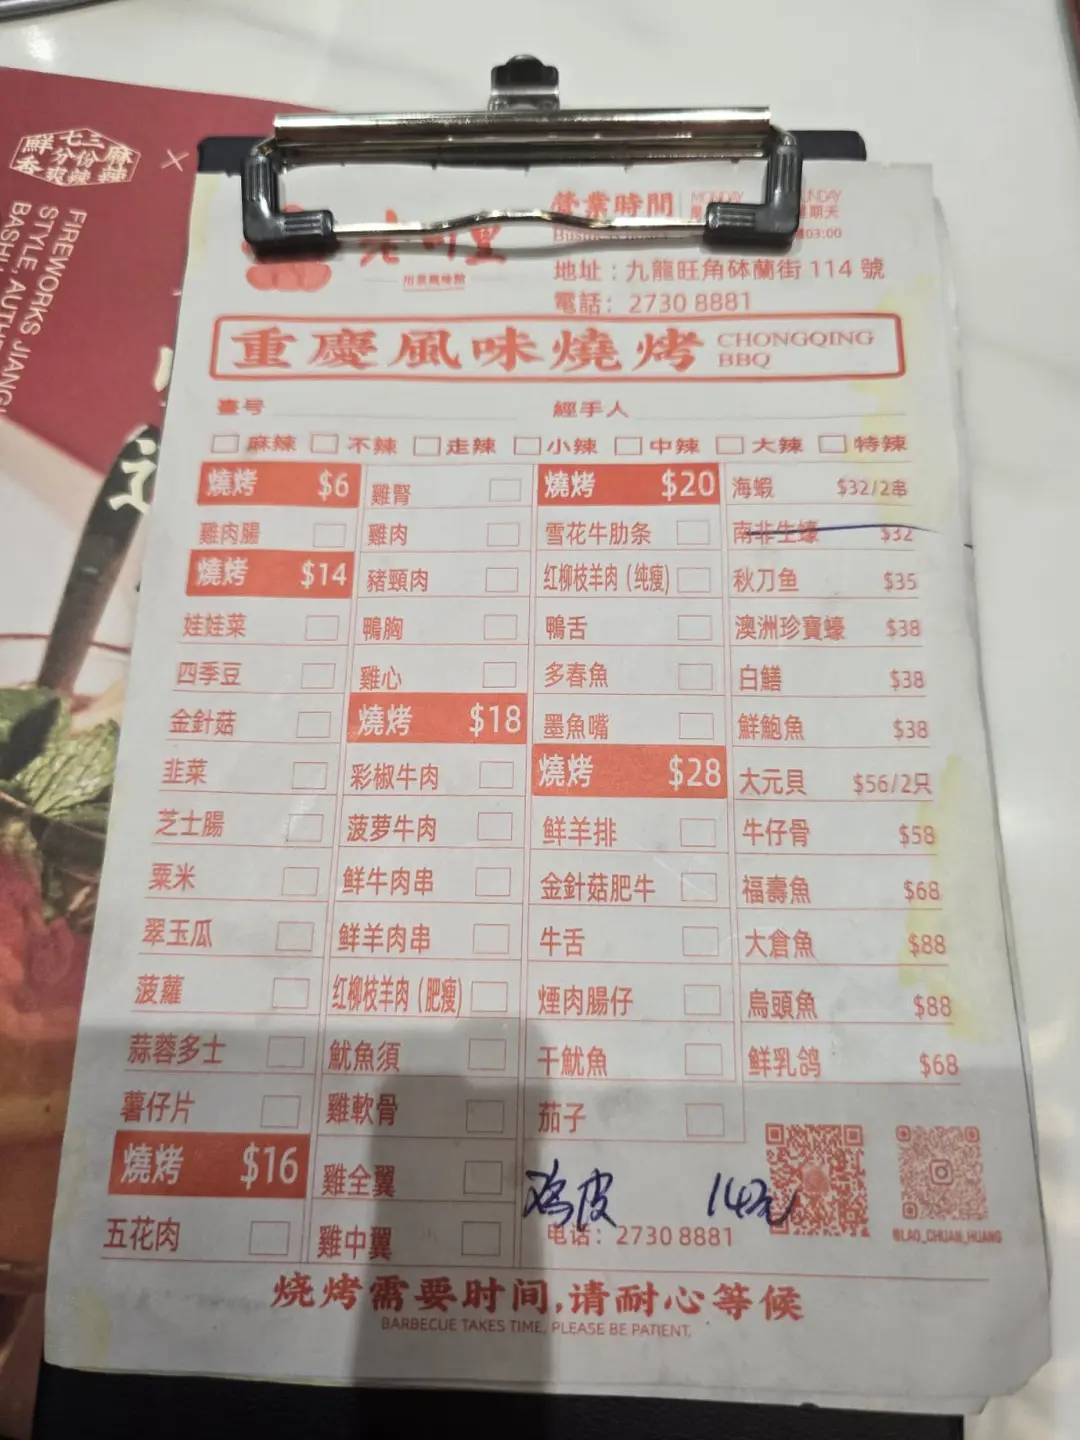 鮮 七 三 麻
香 分 份 辣
爽 辣
×
FIREWORKS JIANG
STYLE. AUTHE
BASHU
營業時間 MONDAY SUNDAY
Business hours 期天
03:00
川里
地址：九龍旺角砵蘭街 114 號
電話：2730 8881
重慶風味燒烤 CHONGQING BBQ
臺号 經手人
麻辣 不辣 走辣 小辣 中辣 大辣 特辣
燒烤 $6
雞肉腸
燒烤 $14
娃娃菜
四季豆
金針菇
韭菜
芝士腸
粟米
翠玉瓜
菠蘿
蒜蓉多士
薯仔片
燒烤 $16
五花肉
雞腎
雞肉
豬頸肉
鴨胸
雞心
燒烤 $18
彩椒牛肉
菠萝牛肉
鲜牛肉串
鲜羊肉串
红柳枝羊肉（肥瘦）
魷魚須
雞軟骨
雞全翼
雞中翼
燒烤 $20
雪花牛肋条
红柳枝羊肉（纯瘦）
鴨舌
多春魚
墨魚嘴
燒烤 $28
鲜羊排
金針菇肥牛
牛舌
煙肉腸仔
干魷魚
茄子
海蝦 $32/2串
南非生蠔 $32
秋刀鱼 $35
澳洲珍寶蠔 $38
白鱔 $38
鮮鮑魚 $38
大元貝 $56/2只
牛仔骨 $58
福壽魚 $68
大倉魚 $88
烏頭魚 $88
鲜乳鸽 $68
鸡皮 14元
电话：2730 8881
@LAO_CHUAN_HUANG
烧烤需要时间,请耐心等候
BARBECUE TAKES TIME, PLEASE BE PATIENT.